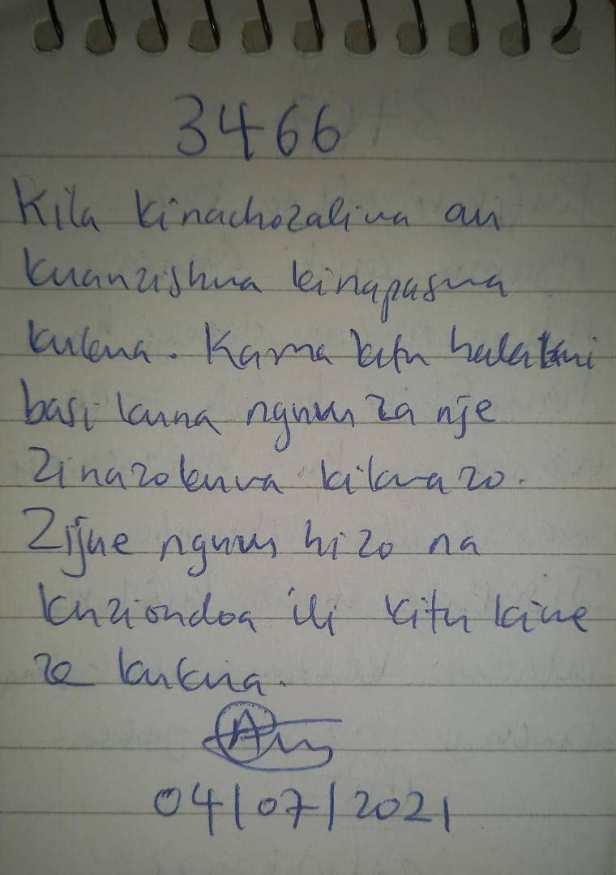 3466
Kila kinachozaliwa au
kuanzishwa kinapaswa
kukua. Kama kitu hakikui
basi kuna nguvu za nje
zinazokuwa kikwazo.
Zijue nguvu hizo na
kuziondoa ili kitu kiwe
ze kukua.
04/07/2021